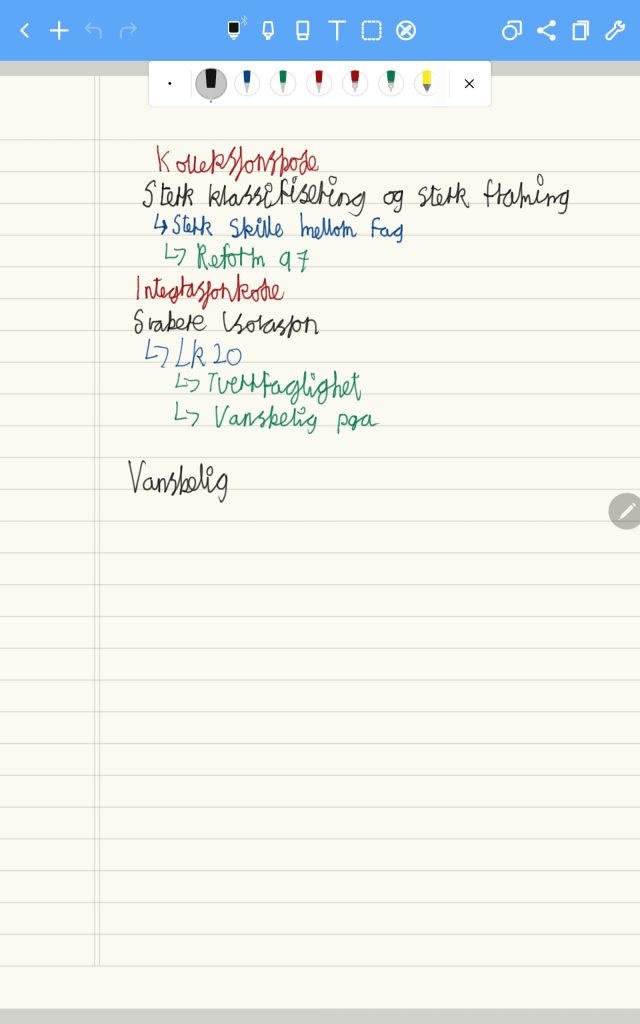 Kolleksjonskode
Sterk klassifisering og sterk framing
↳ Sterk skille mellom fag
↳ Reform 97
Integrasjonkode
Svakere isolasjon
↳ Lk20
↳ Tverrfaglighet
↳ Vanskelig pga
Vanskelig